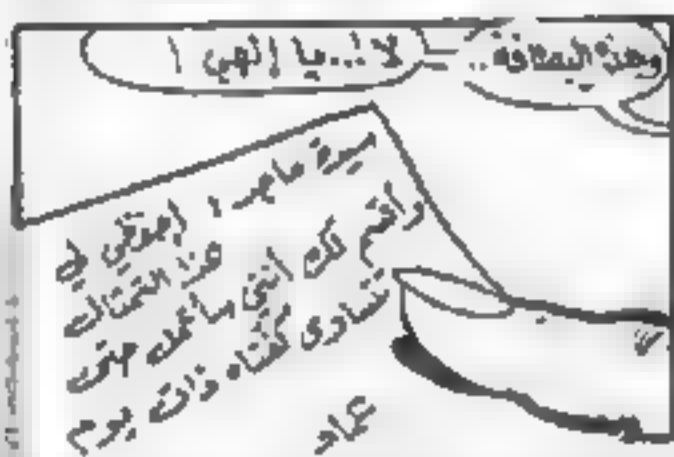 وهذه البطاقة..
لا...يا إلهي!
سيدة ماجد، اصدقي لي
هذا التمثال
وأقسم لك أنني سأعمل حتى
تتساوى كفتاه ذات يوم
عماد